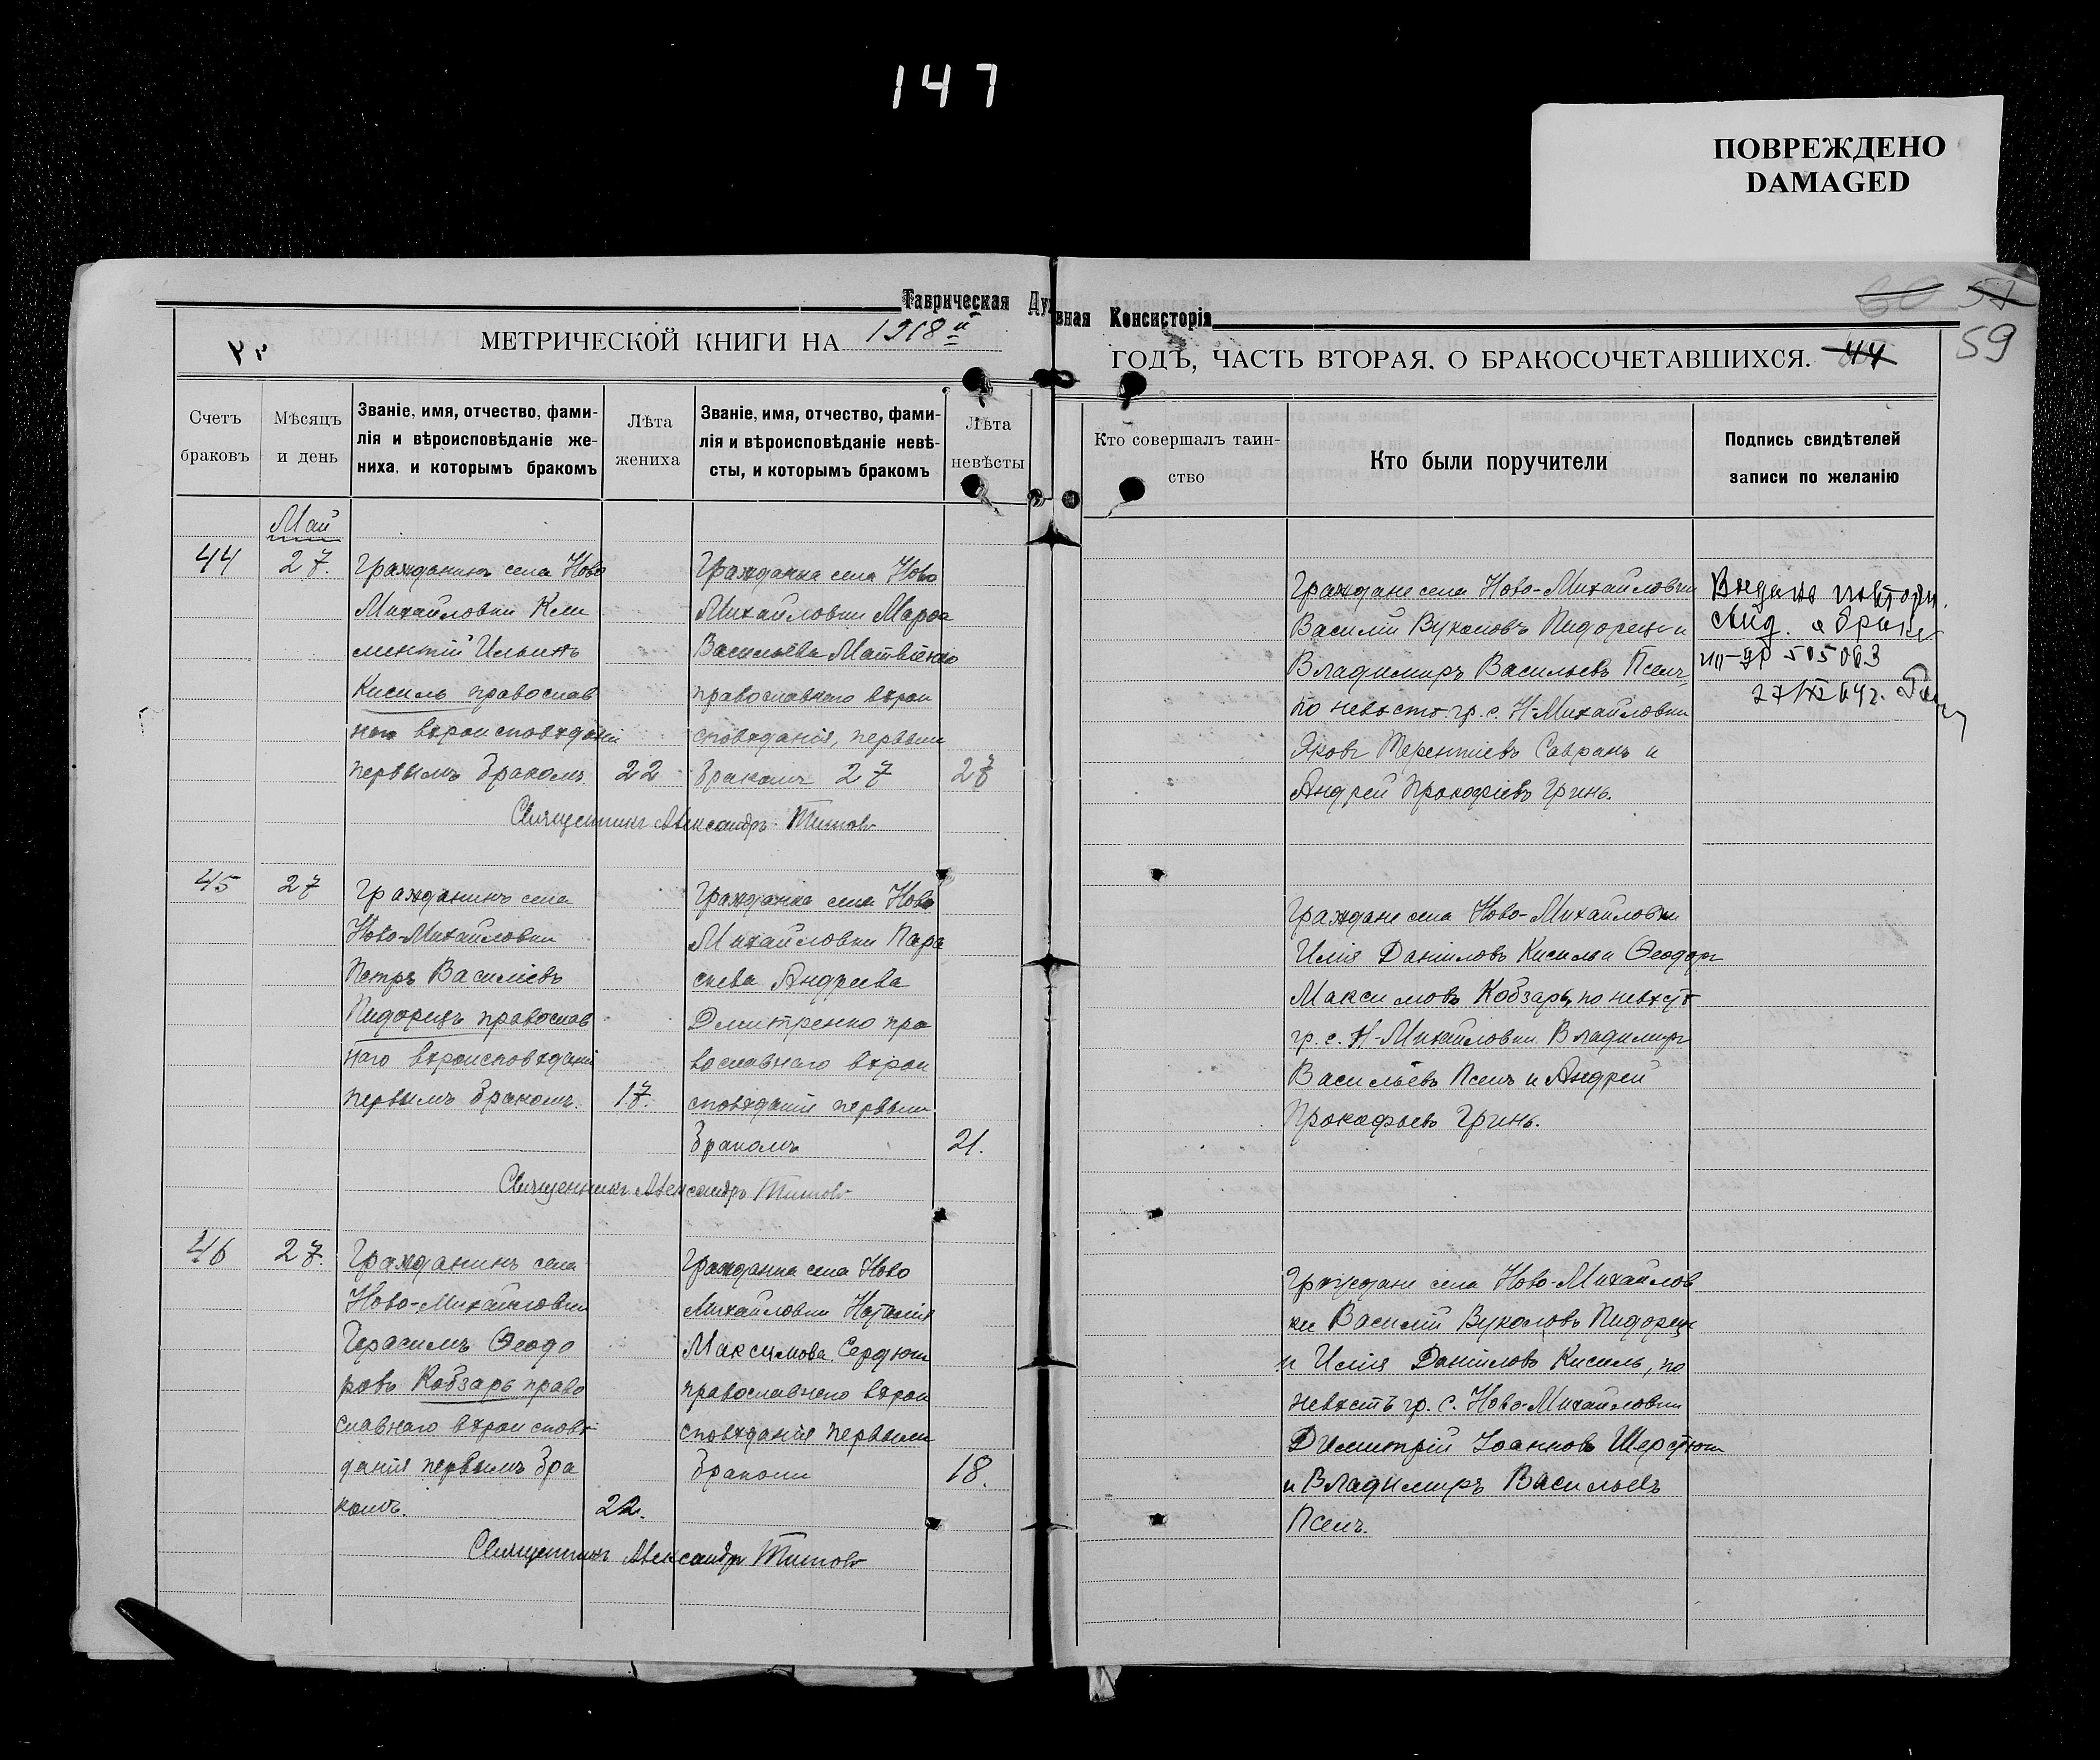 147
ПОВРЕЖДЕНО
DAMAGED
Таврическая Ду
вная Консисторія
МЕТРИЧЕСКОЙ КНИГИ НА 1918й
ГОДЪ, ЧАСТЬ ВТОРАЯ, О БРАКОСОЧЕТАВШИХСЯ. 44
57
59
Счетъ
браковъ
Мѣсяцъ
и день
Званіе, имя, отчество, фами-
лія и вѣроисповѣданіе же-
ниха, и которымъ бракомъ
Лѣта
жениха
Званіе, имя, отчество, фами-
лія и вѣроисповѣданіе невѣ-
сты, и которымъ бракомъ
Лѣта
невѣсты
Кто совершалъ таин-
ство
Кто были поручители
Подпись свидѣтелей
записи по желанію
Май
44
27.
Гражданинъ села Ново
Михайловки Кли
ментій Ильинъ
Кисиль православ
наго вѣроисповѣданія
первымъ бракомъ.
22
Гражданка села Ново
Михайловки Марѳа
Васильева Матвіенко
православнаго вѣрои
сповѣданія, первым
бракомъ 27
27
Священникъ Александръ Титовъ
Граждане села Ново-Михайловки
Василій Вуколовъ Пидорецъ и
Владимиръ Васильевъ Пселъ,
по невѣстѣ гр. с. Н-Михайловки
Яковъ Терентіевъ Савранъ и
Андрей Прокофіевъ Гринь.
Выдано повторн.
свид. о браке
505063
45
27
Гражданинъ села
Ново-Михайловки
Петръ Василіевъ
Пидорецъ православ
наго вѣроисповѣданія
первымъ бракомъ.
17.
Гражданка села Ново
Михайловки Пара
скева Андреева
Дмитренко пра
вославнаго вѣрои
сповѣданія первым
бракомъ
21.
Священникъ Александръ Титовъ
Граждане села Ново-Михайловки
Илія Даніиловъ Кисиль и Ѳеодоръ
Максимовъ Кобзарь, по невѣстѣ
гр. с. Н-Михайловки Владимиръ
Васильевъ Пселъ и Андрей
Прокофьевъ Гринь.
46
27.
Гражданинъ села
Ново-Михайловки
Герасимъ Ѳеодо
ровъ Кобзарь право
славнаго вѣроисповѣ
данія первымъ бра
комъ.
22.
Гражданка села Ново
Михайловки Наталія
Максимова Сердюкъ
православнаго вѣрои
сповѣданія первымъ
бракомъ
18.
Священникъ Александръ Титовъ
Граждане села Ново-Михайлов
ки Василій Вуколовъ Пидорецъ
и Илія Даніиловъ Кисиль, по
невѣстѣ гр. с. Ново-Михайловки
Димитрій Іоанновъ Шерстюкъ
и Владимиръ Васильевъ
Пселъ.